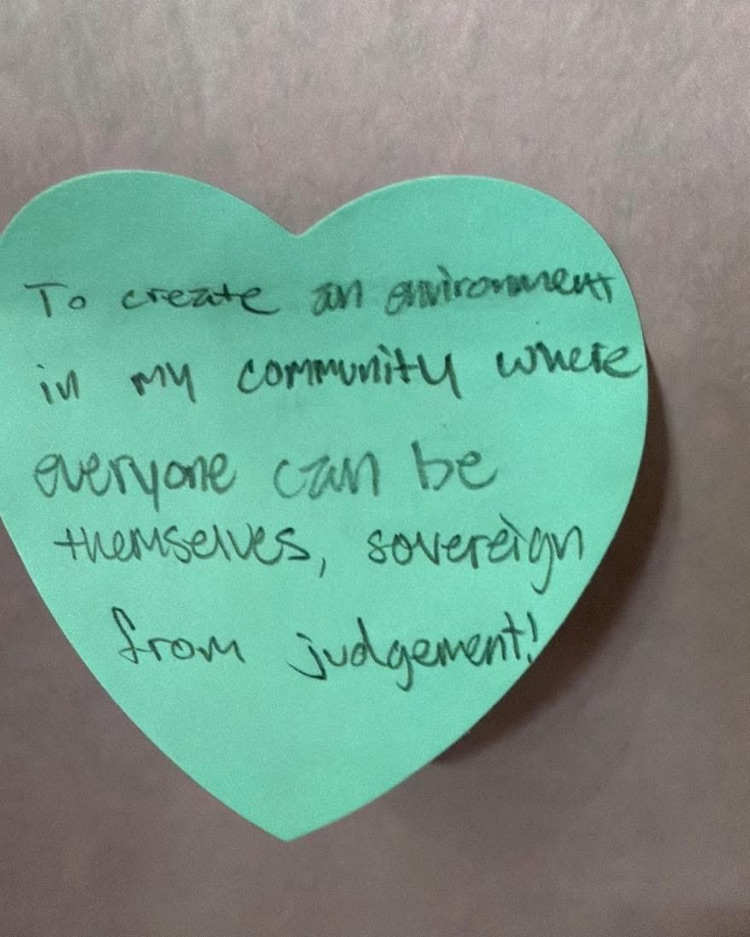 To create an environment
in my community where
everyone can be
themselves, sovereign
from judgement!